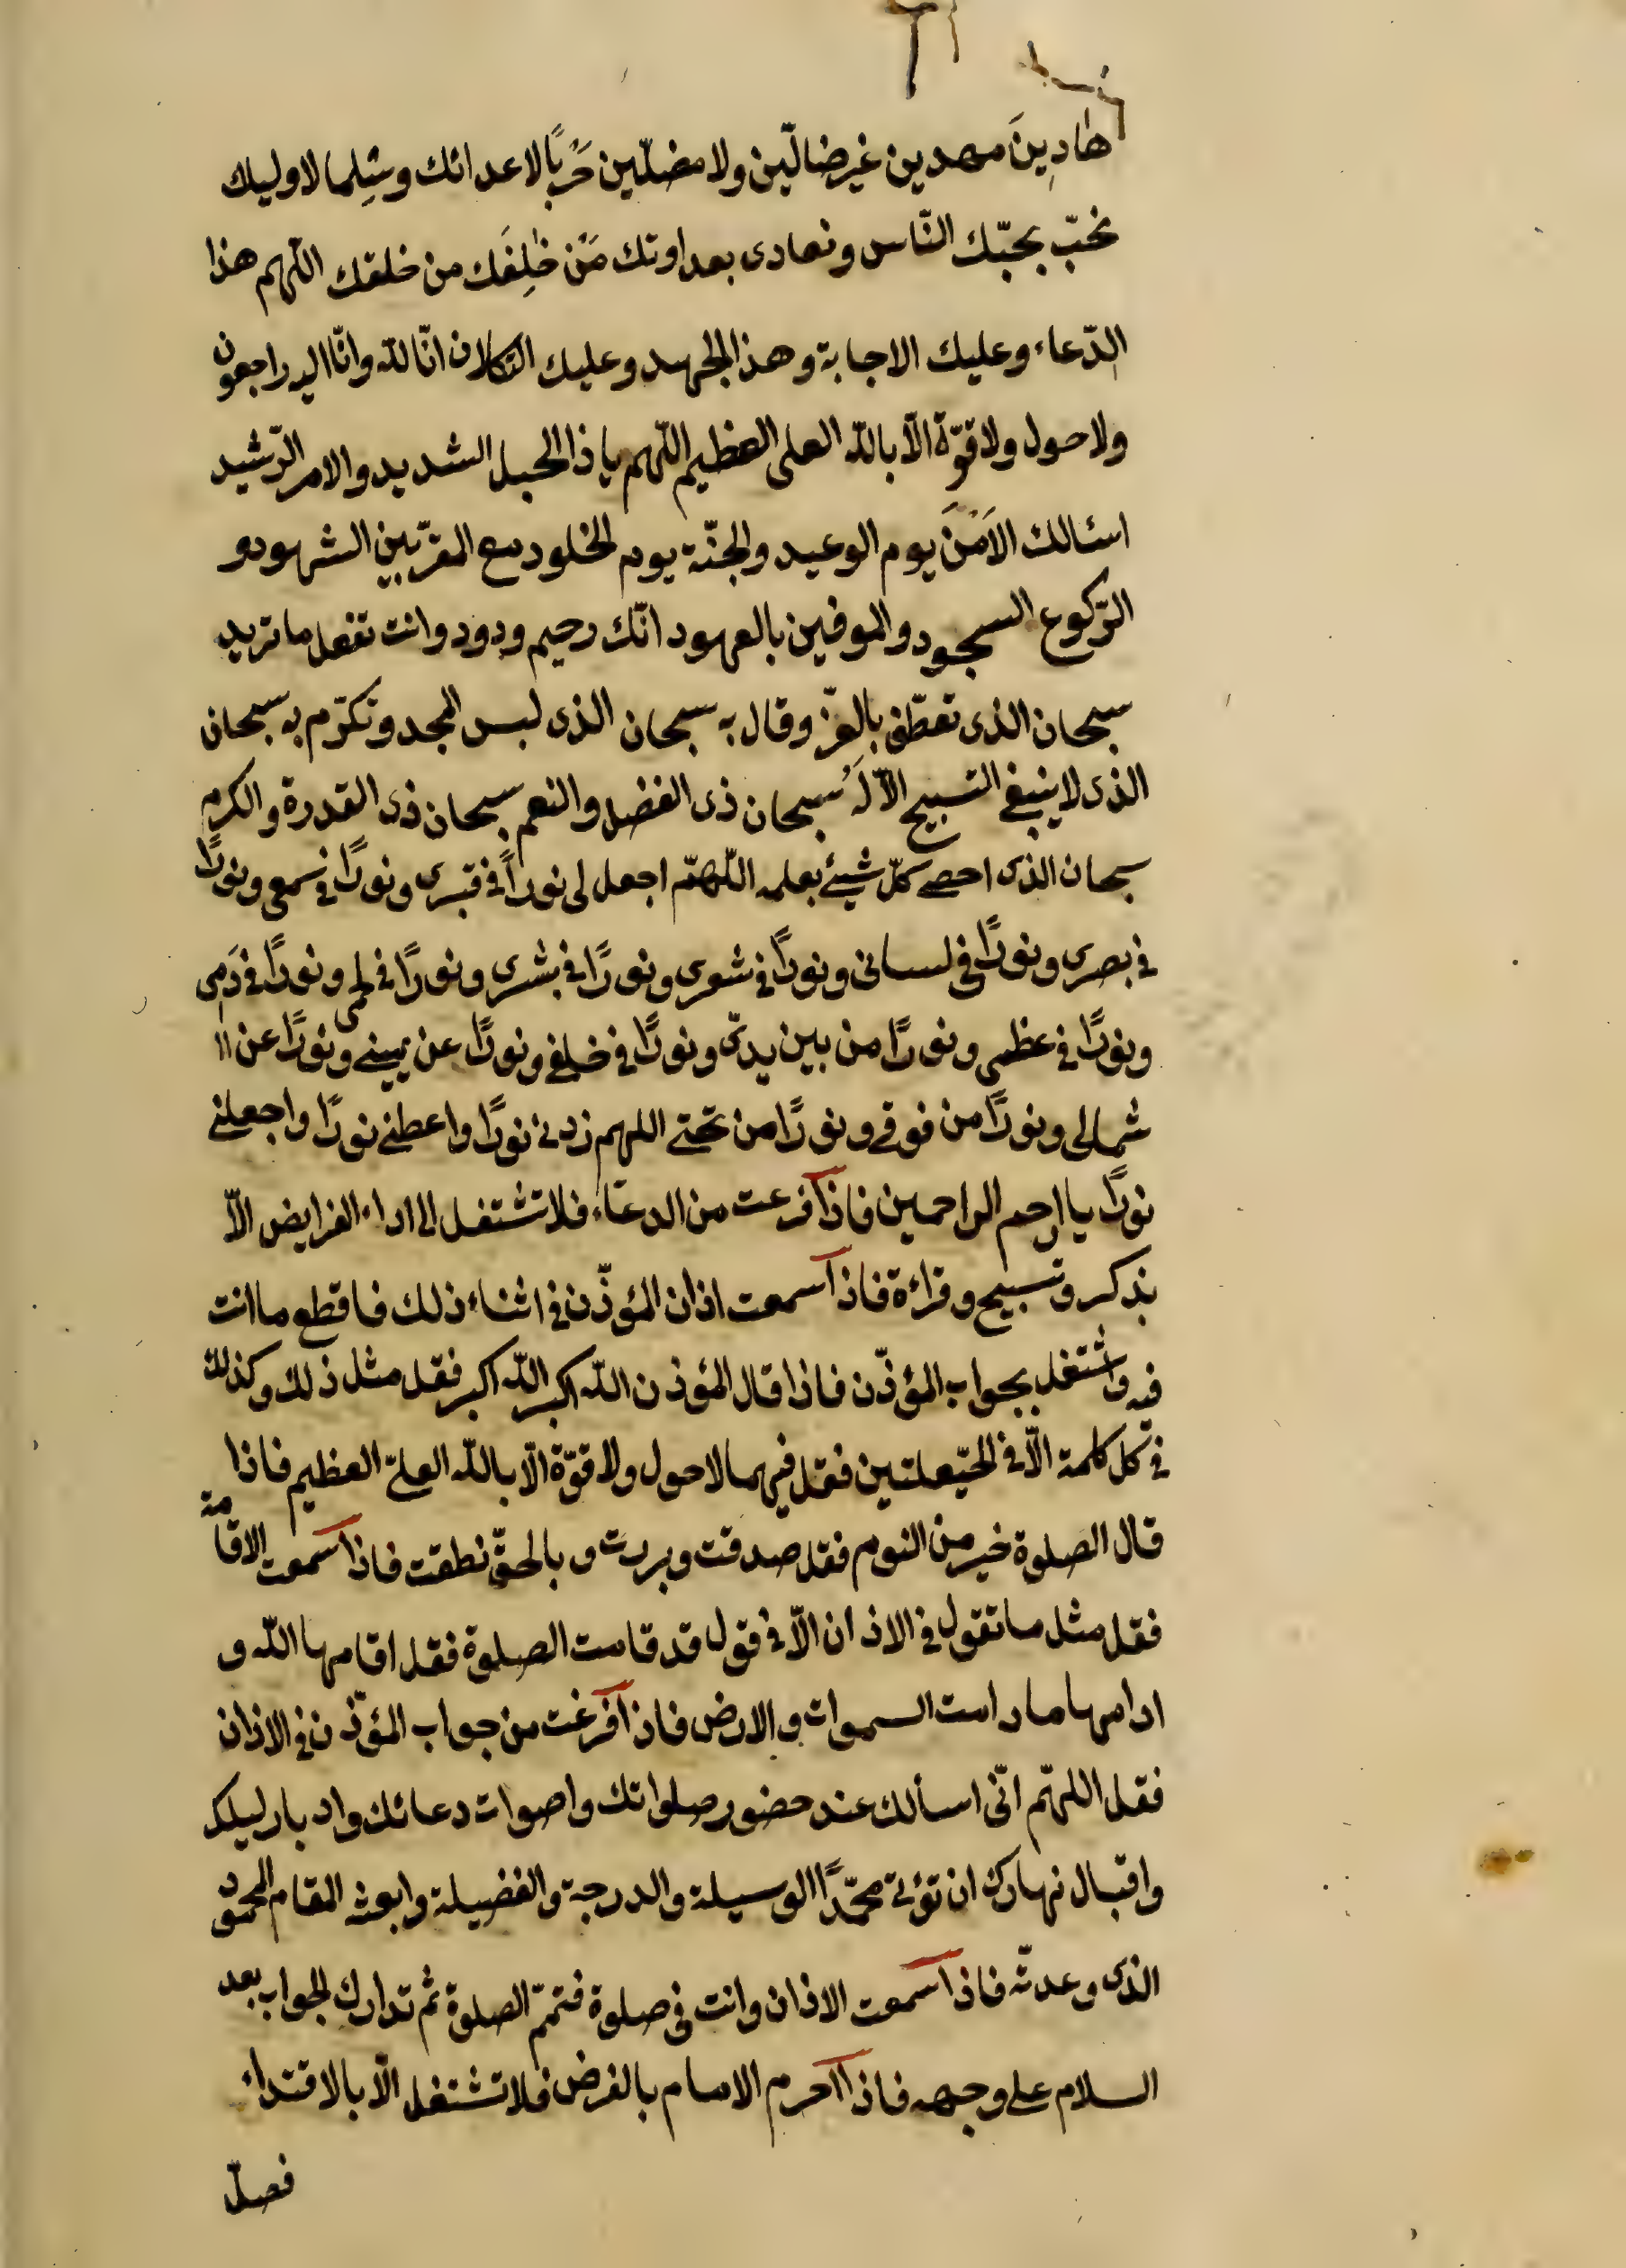 هادِينَ مهدين غير ضالّين ولا مضلّين حَربًا لاعدائك وسِلما لاوليك
نحبّ بحبّك النّاس ونعادى بعداوتك مَنْ خٰلِفَك من خلقك اللّهم هذا
الدّعاء وعليك الاجابة وهذا الجهد وعليك التكلان انّا لله وانّا اليه راجعون
ولا حول ولا قوّة الّا بالله العلى العظيم اللّهم يا ذا الحبل الشديد والامر الرّشيد
اسئالك الاَمْنَ يوم الوعيد والجنّة يوم الخلود مع المقرّبين الشهود و
الرّكوع السجود والموفين بالعهود انّك رحيم ودود وانت تفعل ما تريد
سبحان الذى تعطّف بالعزّ وقال به سبحان الذى لبس المجد وتكرّم به سبحان
الذى لا ينبغى التسبيح الّا لَهُ سبحان ذى الفضل والنعم سبحان ذى القدرة والكرم
سبحان الذى احصى كلّ شيئ بعلمه اللّهمّ اجعل لى نوراً فى قبرى ونورًا فى سمعى ونورًا
فى بصرى ونورًا فى لسانى ونورًا فى شعرى ونورًا فى بشرى ونورًا فى لحمى ونورًا فى دَمِى
ونورًا فى عظمى ونورًا من بين يدىّ ونورًا فى خلفى ونورًا عن يمينى ونورًا عن
شمالى ونورًا من فوقى ونورًا من تحتى اللهم زدنى نورًا واعطنى نورًا واجعلنى
نورًا يا ارحم الراحمين فاذا فرعت من الدعّاء فلا تشتغل الى اداء الفرايض الّا
بذكر وتسبيح وقراءة فاذا سمعت اذان المئوذّن فى اثناء ذلك فاقطع ما انت
فيه واشتغل بجواب المؤذّن فاذا قال المؤذن الله اكبر الله اكبر فقل مثل ذلك وكذلك
فى كل كلمة الّا فى الحيّعلتين فقل فيهما لا حول ولا قوّة الّا بالله العلىّ العظيم فاذا
قال الصلوة خير من النوم فقل صدقت وبررت وبالحقّ نطقت فاذا سمعت الاقامة
فقل مثل ما تقول فى الاذان الّا فى قول قد قامت الصلوة فقل اقامها الله و
ادامها ما دامت السموات والارض فاذا فرغت من جواب المؤذّن فى الاذان
فقل اللهمّ انّى اسألك عند حضور صلواتك واصوات دعائك وادبار ليلك
واقبال نهارك ان تؤتى محمّدًا الوسيلة والدرجة والفضيلة وابعثه المقام المحمود
الذى وعدته فاذا سمعت الاذان وانت فى صلوة فتمّم الصلوة ثم تدارك الجواب بعد
السلام على وجهه فاذا احرم الامام بالفرض فلا تشتغل الّا بالاقتداء
فصل